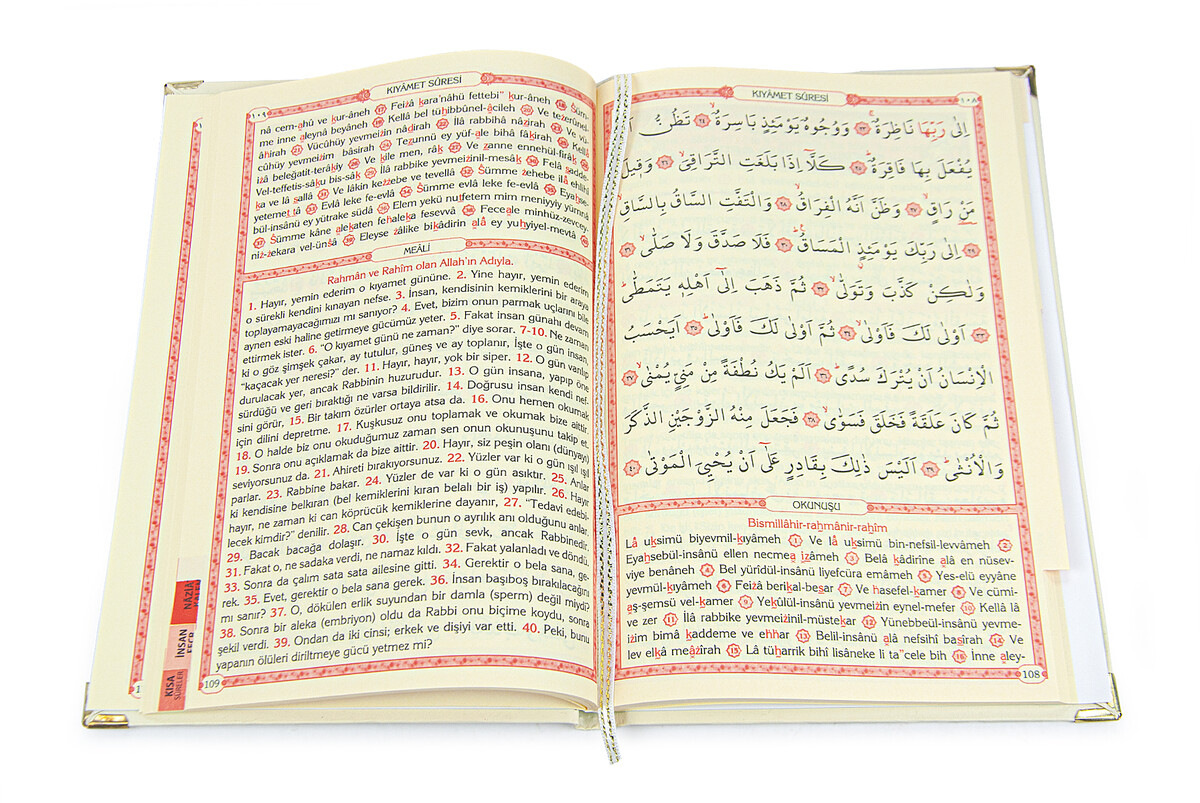 KIYÂMET SÛRESİ
١٠٨
اِلٰى رَبِّهَا نَاظِرَةٌ ﴿٢٣﴾ وَوُجُوهٌ يَوْمَئِذٍ بَاسِرَةٌ ﴿٢٤﴾ تَظُنُّ
يُفْعَلَ بِهَا فَاقِرَةٌ ﴿٢٥﴾ كَلَّٓا اِذَا بَلَغَتِ التَّرَاقِيَ ﴿٢٦﴾ وَقِيلَ
مَنْ رَاقٍ ﴿٢٧﴾ وَظَنَّ اَنَّهُ الْفِرَاقُ ﴿٢٨﴾ وَالْتَفَّتِ السَّاقُ بِالسَّاقِ
﴿٢٩﴾ اِلٰى رَبِّكَ يَوْمَئِذٍ الْمَسَاقُ ﴿٣٠﴾ فَلَا صَدَّقَ وَلَا صَلّٰى ﴿٣١﴾
وَلٰكِنْ كَذَّبَ وَتَوَلّٰى ﴿٣٢﴾ ثُمَّ ذَهَبَ اِلٰٓى اَهْلِه۪ يَتَمَطّٰى
﴿٣٣﴾ اَوْلٰى لَكَ فَاَوْلٰى ﴿٣٤﴾ ثُمَّ اَوْلٰى لَكَ فَاَوْلٰى ﴿٣٥﴾ اَيَحْسَبُ
الْاِنْسَانُ اَنْ يُتْرَكَ سُدًى ﴿٣٦﴾ اَلَمْ يَكُ نُطْفَةً مِنْ مَنِيٍّ يُمْنٰى ﴿٣٧﴾
ثُمَّ كَانَ عَلَقَةً فَخَلَقَ فَسَوّٰى ﴿٣٨﴾ فَجَعَلَ مِنْهُ الزَّوْجَيْنِ الذَّكَرَ
وَالْاُنْثٰى ﴿٣٩﴾ اَلَيْسَ ذٰلِكَ بِقَادِرٍ عَلٰٓى اَنْ يُحْيِيَ الْمَوْتٰى ﴿٤٠﴾
OKUNUŞU
Bismillâhir-rahmânir-rahîm
Lâ uksimü biyevmil-kıyâmeh 1 Ve lâ uksimü bin-nefsil-levvâmeh 2
Eyahsebül-insânü ellen necmea ızâmeh 3 Belâ kâdirîne alâ en nüsev-
viye benâneh 4 Bel yürîdül-insânü liyefcüra emâmeh 5 Yes-elü eyyâne
yevmül-kıyâmeh 6 Feizâ berikal-besar 7 Ve hasefel-kamer 8 Ve cümi-
aş-şemsü vel-kamer 9 Yekûlül-insânü yevmeizin eynel-mefer 10 Kellâ lâ
ve zer 11 İlâ rabbike yevmeizinil-müstekar 12 Yünebbeül-insânü yevme-
izim bimâ kaddeme ve ehhar 13 Belil-insânü alâ nefsihî basîrah 14 Ve
lev elkâ meâzîrah 15 Lâ tüharrik bihî lisâneke li ta"cele bih 16 İnne aley-
108
KIYÂMET SÛRESİ
١٠٩
nâ cem-ahû ve kur-âneh 17 Feizâ kara'nâhü fettebi" kur-âneh 18 Süm-
me inne aleynâ beyâneh 19 Kellâ bel tühibbûnel-âcileh 20 Ve tezerûnel-
âhirah 21 Vücûhüy yevmeizin nâdirah 22 İlâ rabbihâ nâzirah 23 Ve vü-
cûhüy yevmeizim bâsirah 24 Tezunnü ey yüf-ale bihâ fâkirah 25 Kellâ
izâ beleğatit-terâkıy 26 Ve kîle men, râk 27 Ve zanne ennehül-firâk 28
Vel-teffetis-sâku bis-sâk 29 İlâ rabbike yevmeizinil-mesâk 30 Felâ sadde-
ka ve lâ sallâ 31 Ve lâkin kezzebe ve tevellâ 32 Sümme zehebe ilâ ehlihî
yetemettâ 33 Evlâ leke fe-evlâ 34 Sümme evlâ leke fe-evlâ 35 Eyahse-
bül-insânü ey yütrake südâ 36 Elem yekü nutfetem mim meniyyiy yümnâ
37 Sümme kâne alekaten fehaleka fesevvâ 38 Feceale minhüz-zevcey-
niz-zekara vel-ünsâ 39 Eleyse zâlike bikâdirin alâ ey yuhyiyel-mevtâ 40
MEÂLİ
Rahmân ve Rahîm olan Allah'ın Adıyla.
1. Hayır, yemin ederim o kıyamet gününe. 2. Yine hayır, yemin ederim
o sürekli kendini kınayan nefse. 3. İnsan, kendisinin kemiklerini bir araya
toplayamayacağımızı mı sanıyor? 4. Evet, bizim onun parmak uçlarını bile
aynen eski haline getirmeye gücümüz yeter. 5. Fakat insan günahı devam
ettirmek ister. 6. "O kıyamet günü ne zaman?" diye sorar. 7-10. Ne zaman
ki o göz şimşek çakar, ay tutulur, güneş ve ay toplanır, İşte o gün insan,
"kaçacak yer neresi?" der. 11. Hayır, hayır, yok bir siper. 12. O gün varılıp
durulacak yer, ancak Rabbinin huzurudur. 13. O gün insana, yapıp öne
sürdüğü ve geri bıraktığı ne varsa bildirilir. 14. Doğrusu insan kendi nef-
sini görür, 15. Bir takım özürler ortaya atsa da. 16. Onu hemen okumak
için dilini depretme. 17. Kuşkusuz onu toplamak ve okumak bize aittir.
18. O halde biz onu okuduğumuz zaman sen onun okunuşunu takip et,
19. Sonra onu açıklamak da bize aittir. 20. Hayır, siz peşin olanı (dünyayı)
seviyorsunuz da. 21. Ahireti bırakıyorsunuz. 22. Yüzler var ki o gün ışıl ışıl
parlar. 23. Rabbine bakar. 24. Yüzler de var ki o gün asıktır. 25. Anlar
ki kendisine belkıran (bel kemiklerini kıran belalı bir iş) yapılır. 26. Hayır
hayır, ne zaman ki can köprücük kemiklerine dayanır, 27. "Tedavi edebi-
lecek kimdir?" denilir. 28. Can çekişen bunun o ayrılık anı olduğunu anlar.
29. Bacak bacağa dolaşır. 30. İşte o gün sevk, ancak Rabbinedir.
31. Fakat o, ne sadaka verdi, ne namaz kıldı. 32. Fakat yalanladı ve döndü.
33. Sonra da çalım sata sata ailesine gitti. 34. Gerektir o bela sana, ge-
rek. 35. Evet, gerektir o bela sana gerek. 36. İnsan başıboş bırakılacağını
mı sanır? 37. O, dökülen erlik suyundan bir damla (sperm) değil miydi?
38. Sonra bir aleka (embriyon) oldu da Rabbi onu biçime koydu, sonra
şekil verdi. 39. Ondan da iki cinsi; erkek ve dişiyi var etti. 40. Peki, bunu
yapanın ölüleri diriltmeye gücü yetmez mi?
109
NÂZİÂT
İNSAN
FECR
KISA
SÛRELER